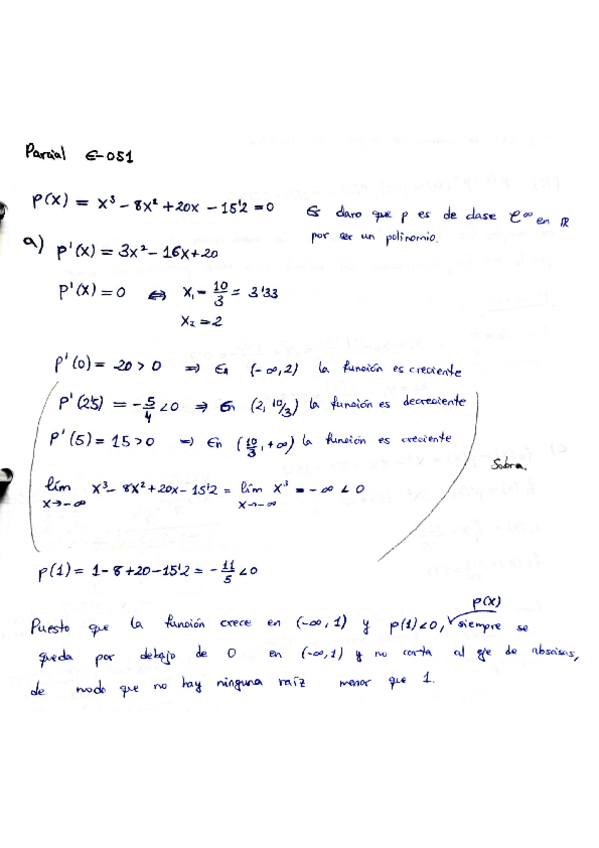 Parcial E-051
P(x) = x³ - 8x² + 20x - 15'2 = 0
Es claro que p es de clase C^∞ en ℝ
por ser un polinomio.
a) P'(x) = 3x² - 16x + 20
P'(x) = 0 ⇔ x₁ = 10/3 = 3'33
x₂ = 2
P'(0) = 20 > 0 ⇒ En (-∞, 2) la función es creciente
P'(2'5) = -5/4 < 0 ⇒ En (2, 10/3) la función es decreciente
P'(5) = 15 > 0 ⇒ En (10/3, +∞) la función es creciente
Sobra.
lim x→-∞ x³ - 8x² + 20x - 15'2 = lim x→-∞ x³ = -∞ < 0
p(1) = 1 - 8 + 20 - 15'2 = -11/5 < 0
Puesto que la función crece en (-∞, 1) y p(1) < 0, p(x) siempre se
queda por debajo de 0 en (-∞, 1) y no corta al eje de abscisas,
de modo que no hay ninguna raíz menor que 1.